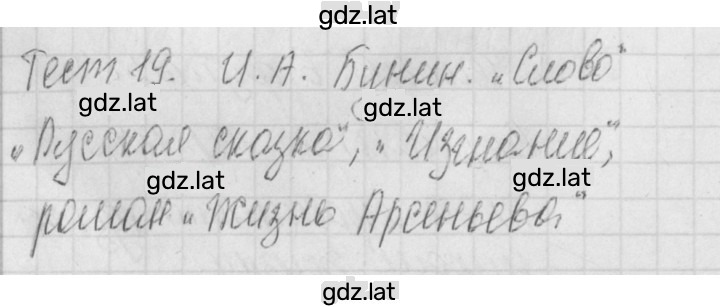 gdz.lat
Тест 19. И. А. Бунин. „Слово"
gdz.lat
gdz.lat
„Русская сказка", „Изгнание",
gdz.lat
gdz.lat
роман „Жизнь Арсеньева"
gdz.lat